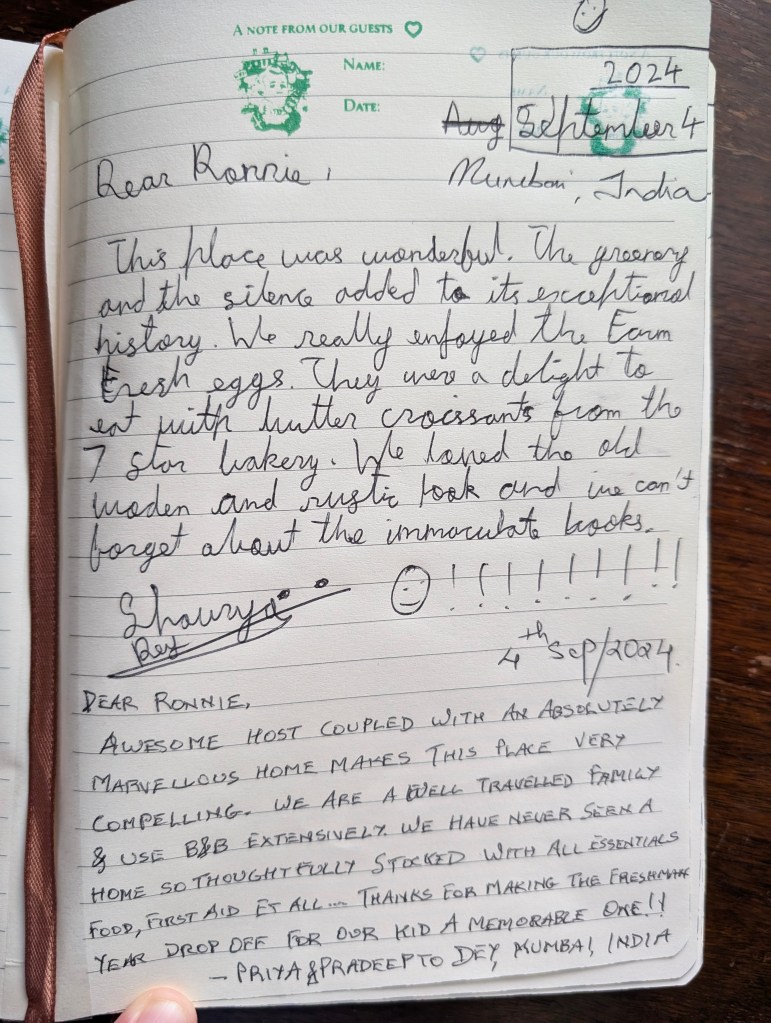 A NOTE FROM OUR GUESTS
NAME:
DATE:
2024
Aug September 4
Dear Ronnie,
Mumbai, India
This place was wonderful. The greenery
and the silence added to its exceptional
history. We really enjoyed the Farm
Fresh eggs. They were a delight to
eat with butter croissants from the
7 star bakery. We loved the old
wooden and rustic look and we can't
forget about the immaculate books.
Shourya
Dey
!!!!!!!!!
4th Sep/2024.
DEAR RONNIE,
AWESOME HOST COUPLED WITH AN ABSOLUTELY
MARVELLOUS HOME MAKES THIS PLACE VERY
COMPELLING. WE ARE A WELL TRAVELLED FAMILY
& USE B&B EXTENSIVELY. WE HAVE NEVER SEEN A
HOME SO THOUGHTFULLY STOCKED WITH ALL ESSENTIALS
FOOD, FIRST AID ET ALL... THANKS FOR MAKING THE FRESHMAN
YEAR DROP OFF FOR OUR KID A MEMORABLE ONE!!
- PRIYA & PRADEEPTO DEY, MUMBAI, INDIA